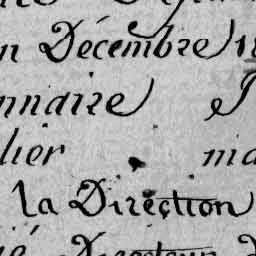 n Décembre 18
nnaire J
lier ma
la Direction
ié Directeur D